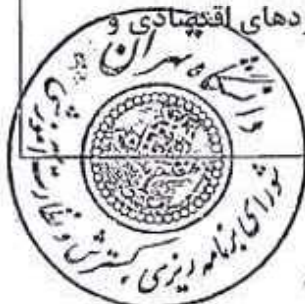 ردهای اقتصادی و
دانشگاه تهران
شورای برنامه ریزی گسترش و نظارت